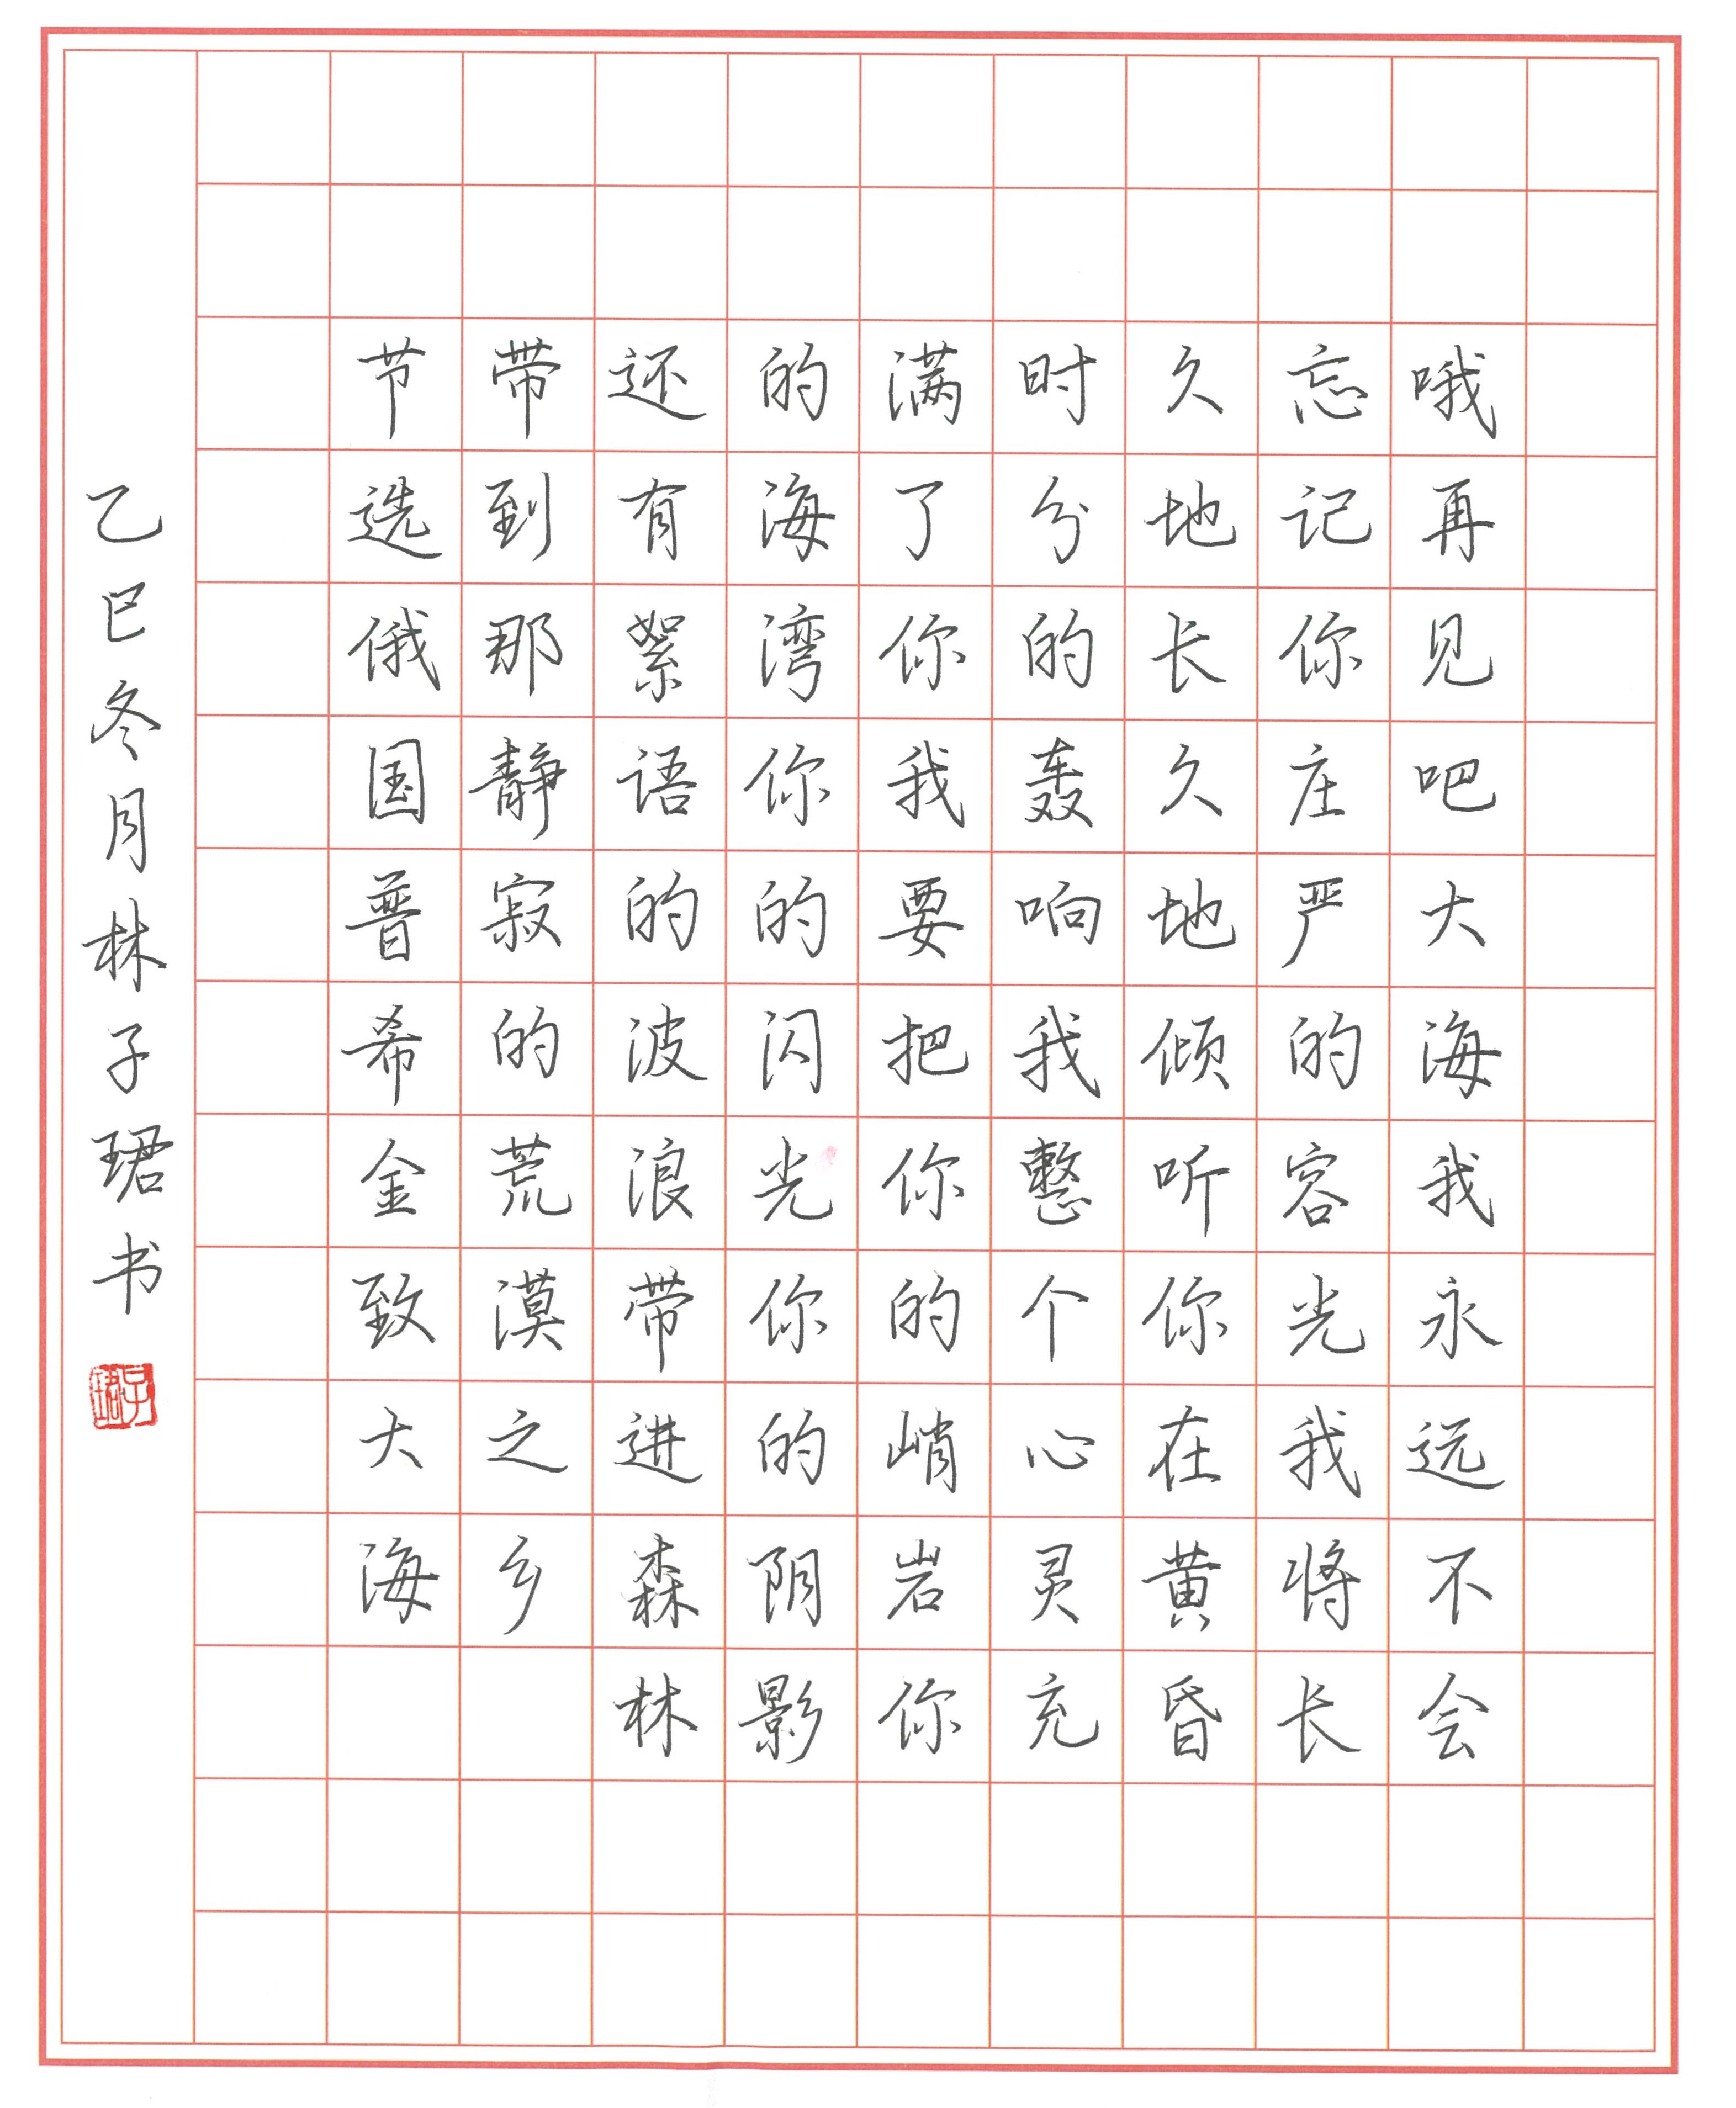 哦再见吧大海我永远不会
忘记你庄严的容光我将长
久地长久地倾听你在黄昏
时分的轰响我整个心灵充
满了你我要把你的峭岩你
的海湾你的闪光你的阴影
还有絮语的波浪带进森林
带到那静寂的荒漠之乡
节选俄国普希金致大海
乙巳冬月林子珺书
子珺